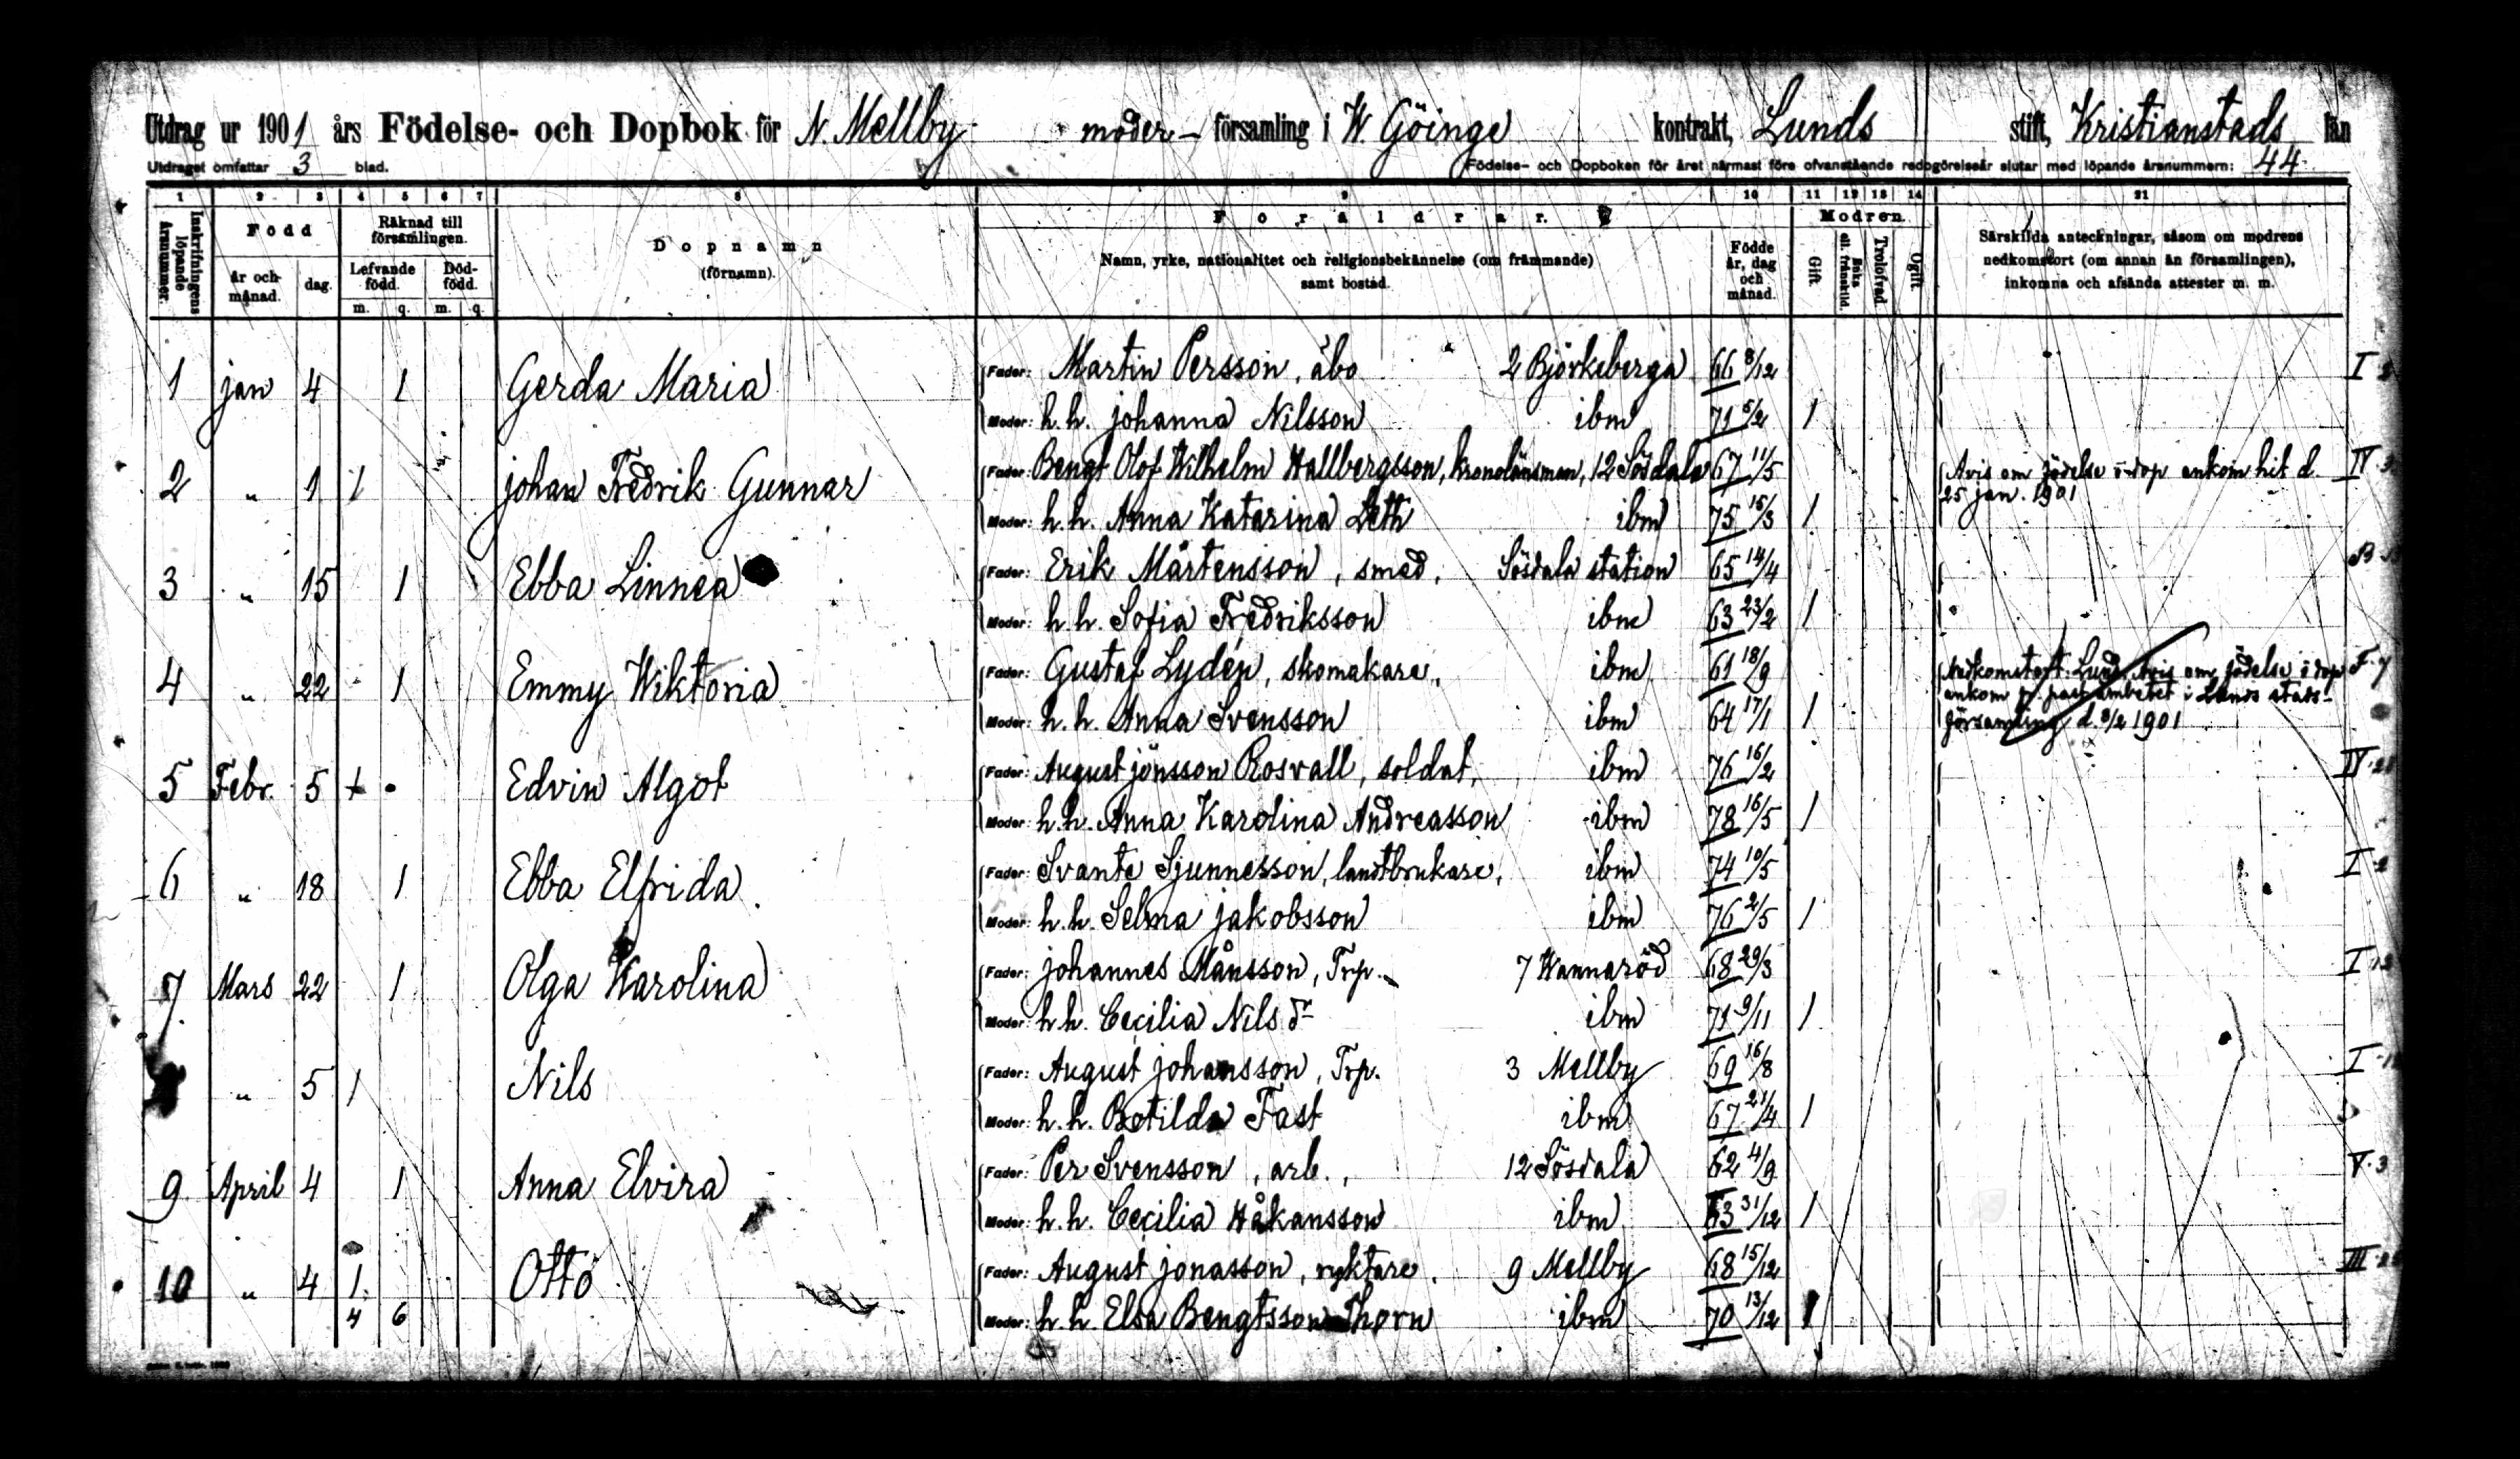 Utdrag ur 1901 års Födelse- och Dopbok för N. Mellby moder- församling i W. Göinge kontrakt, Lunds stift, Kristianstads län
Utdraget omfattar 3 blad. Födelse- och Dopboken för året närmast före ofvanstående redogörelseår slutar med löpande årsnummern: 44
1 2 3 4 5 6 7 8 9 10 11 12 13 14 21
Inskrifningens löpande årsnummer.
Född
År och månad.
dag.
Räknad till församlingen.
Lefvande född.
Död-född.
m. q. m. q.
Dopnamn
(förnamn).
Föräldrar.
Namn, yrke, nationalitet och religionsbekännelse (om främmande)
samt bostad.
Födde år, dag och månad.
Modren
Gift
Enka ell. frånskild.
Trolofvad.
Ogift.
Särskilda anteckningar, såsom om modrens
nedkomstort (om annan än församlingen),
inkomna och afsända attester m. m.
1 jan 4 1 Gerda Maria Fader: Martin Persson, åbo 2 Björkeberga 66 8/12 I 2
Moder: h. h. johanna Nilsson ibm 71 5/2 1
2 " 1 1 johan Fredrik Gunnar Fader: Bengt Olof Wilhelm Hallbergsson, kronolänsman, 12 Sösdala 67 11/5 Avis om födelse o dop ankom hit d. IV 3
25 jan. 1901
Moder: h. h. Anna Katarina Leth ibm 75 15/3 1
3 " 15 1 Ebba Linnea Fader: Erik Mårtensson, smed, Sösdala station 65 14/4
Moder: h. h. Sofia Fredriksson ibm 63 23/2 1
4 " 22 1 Emmy Wiktoria Fader: Gustaf Lydén, skomakare, ibm 61 18/9 Nedkomstort: Lund. Avis om födelse o dop F. 7
ankom fr. pastorsämbetet i Lunds stads-
Moder: h. h. Anna Svensson ibm 64 17/1 1 församling d. 8/2 1901
5 Febr. 5 + Edvin Algot Fader: August jönsson Rosvall, soldat, ibm 76 16/2 IV
Moder: h. h. Anna Karolina Andreasson ibm 78 16/5 1
6 " 18 1 Ebba Elfrida Fader: Svante Sjunnesson, landtbrukare, ibm 74 10/5 I 2
Moder: h. h. Selma jakobsson ibm 76 2/5 1
7 Mars 22 1 Olga Karolina Fader: johannes Månsson, Trp. 7 Wannaröd 68 29/3 I
Moder: h. h. Cecilia Nils dr ibm 71 9/11 1
" 5 1 Nils Fader: August johansson, Trp. 3 Mellby 69 16/8 I
Moder: h. h. Botilda Fast ibm 67 21/4 1
9 April 4 1 Anna Elvira Fader: Per Svensson, arb., 12 Sösdala 62 4/9 V. 3
Moder: h. h. Cecilia Håkansson ibm 63 31/12 1
10 " 4 1 Otto Fader: August jonasson, ryktare. 9 Mellby 68 15/12 III
4 6 Moder: h. h. Elsa Bengtsson Thorn ibm 70 13/12 1